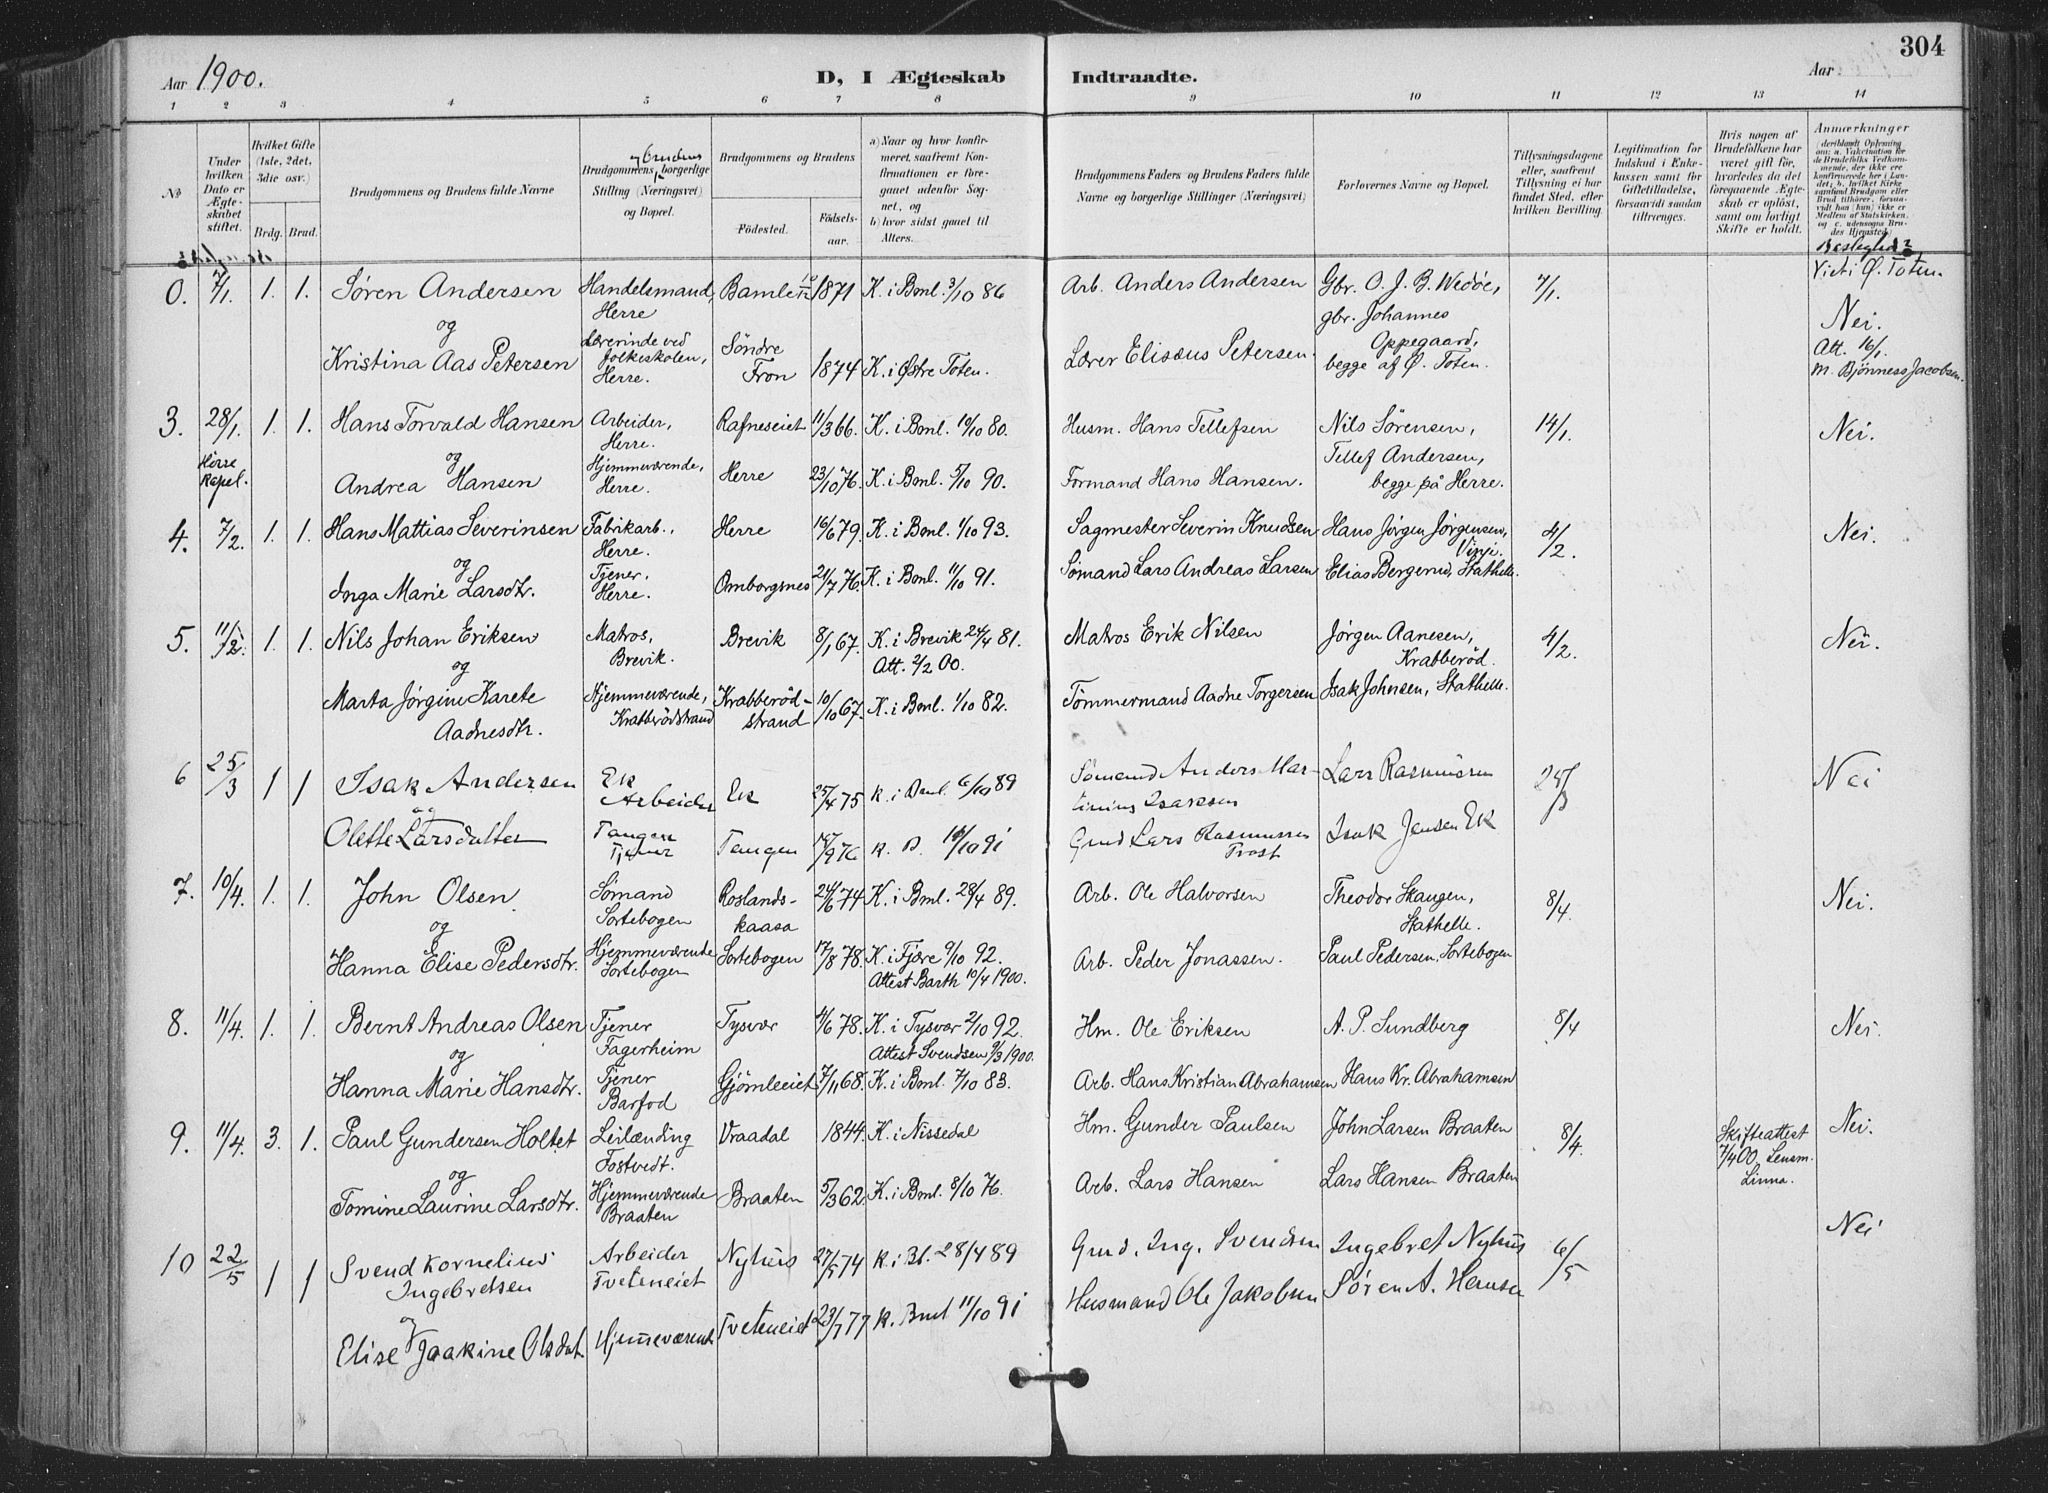 304
Aar 1900.
D, I Ægteskab Indtraadte.
Aar
1 2 3 4 5 6 7 8 9 10 11 12 13 14
No
Under hvilken Dato er Ægteskabet stiftet.
Hvilket Gifte (1ste, 2det, 3die osv.)
Brdg. Brud.
Brudgommens og Brudens fulde Navne
Brudgommens og brudens borgerlige Stilling (Næringsvei) og Bopæl.
Brudgommens og Brudens
Födested. Födselsaar.
a) Naar og hvor konfirmeret, saafremt Konfirmationen er foregaaet udenfor Sognet, og
b) hvor sidst gaaet til Alters.
Brudgommens Faders og Brudens Faders fulde Navne og borgerlige Stillinger (Næringsvei)
Forlovernes Navne og Bopæl.
Tillysningsdagene eller, saafremt Tillysning ei har fundet Sted, efter hvilken Bevilling.
Legitimation for Indskud i Enkekassen samt for Giftetilladelse, forsaavidt saadan tiltrænges.
Hvis nogen af Brudefolkene har været gift før, hvorledes da det foregaaende Ægteskab er oplöst, samt om lovligt Skifte er holdt.
Anmærkninger (deriblandt Oplysning om: a. Vakcination for de Brudefolks Vedkommende, der ikke ere konfirmerede her i Landet; b. hvilket Kirkesamfund Brudgom eller Brud tilhører, forsaavidt han (hun) ikke er Medlem af Statskirken, og c. udensogns Brudes Hjemsted.)
Beslegted?
0. 7/1. 1. 1. Søren Andersen Handelsmand, Herre Bamle 1871 K. i Baml. 3/10 86 Arb. Anders Andersen Gbr. O. J. B. Wedøe, 7/1. Viet i Ø. Toten.
og gbr. Johannes Nei.
Kristina Aas Petersen Lærerinde ved Folkeskolen, Herre. Søndre Fron 1874 K. i Østre Toten. Lærer Elisæus Petersen. Oppegaard, begge af Ø. Toten. Att. 16/1. M. Bjønness Jacobsen.
3. 28/1. 1. 1. Hans Torvald Hansen Arbeider, Herre. Rafneseiet 11/3 66. K. i Baml. 10/10 80. Husm. Hans Tellefsen Nils Sørensen, 14/1. Nei.
Herre Kapel. og
Andrea Hansen Hjemmeværende, Herre. Herre 23/10 76. K. i Baml. 5/10 90. Formand Hans Hansen. Tellef Andersen, begge på Herre.
4. 7/2. 1. 1. Hans Mattias Severinsen Fabrikarb., Herre. Herre 16/6 79. K. i Baml. 1/10 93. Sagmester Severin Knudsen Hans Jørgen Jørgensen, Vinje. 4/2. Nei.
og
Inga Marie Larsdtr. Tjener, Herre. Omborgsnes 21/7 76. K. i Baml. 11/10 91. Sømand Lars Andreas Larsen Elias Bergerud, Stathelle.
5. 11/2. 1. 1. Nils Johan Eriksen Matros, Brevik. Brevik 8/1 67. K. i Brevik 24/4 81. Att. 2/2 00. Matros Erik Nilsen Jørgen Aanesen, Krabberød. 4/2. Nei.
og
Marta Jørgine Karete Aadnesdtr. Hjemmeværende, Krabberödstrand Krabberödstrand 10/10 67. K. i Baml. 1/10 82. Tømmermand Aadne Torgersen Isak Johnsen, Stathelle.
6 25/3 1 1 Isak Andersen Ek Arbeider Ek 25/4 75 K. i Baml 6/10 89 Sømand Anders Martinius Isaksen Lars Rasmussen 25/3 Nei
og
Olette Larsdatter Tangen Tjener Tangen K. B. 11/10 91 Gmd Lars Rasmussen Trost Isak Jensen Ek
7. 10/4. 1. 1. John Olsen Sømand Sortebogen Roslandskaasa 24/6 74 K. i Bml. 28/4 89. Arb. Ole Halvorsen Theodor Skaugen, Stathelle. 8/4. Nei.
og
Hanna Elise Pedersdtr. Hjemmeværende Sortebogen Sortebogen 17/8 78. K. i Fjære 9/10 92. Attest Barth 10/4 1900. Arb. Peder Jonassen. Paul Pedersen, Sortebogen
8. 11/4. 1. 1. Bernt Andreas Olsen Tjener Fagerheim Tysvær 4/6 78. K. i Tysvær 2/10 92. Attest Svendsen 9/3 1900. Hm. Ole Eriksen A. P. Sundberg 8/4 Nei.
og
Hanna Marie Hansdtr. Tjener Barfod Gjømleeiet 7/11 68. K. i Baml. 7/10 83. Arb. Hans Kristian Abrahamsen Hans Kr. Abrahamsen
9. 11/4. 3. 1. Paul Gundersen Holtet Leilænding Fostvedt. Vraadal 1844. K. i Nissedal Hm. Gunder Paulsen John Larsen Braaten 8/4. Skifteattest 7/4 00. Lensm. Linna. Nei.
og
Tomine Laurine Larsdtr. Hjemmeværende Braaten Braaten 5/3 62. K. i Baml. 8/10 76. Arb. Lars Hansen Lars Hansen Braaten
10 22/5 1 1 Svend Kornelius Ingebretsen Arbeider Tveteneiet Nyhus 27/5 74 K. i Bl. 28/4 89 Gmd. Ing. Svendsen Ingebret Nyhus 6/5 Nei
og
Elise Joakine Olsdat. Hjemmeværende Tveteneiet 23/7 77 K. Baml 11/10 91 Husmand Ole Jakobsen Søren A. Hansen